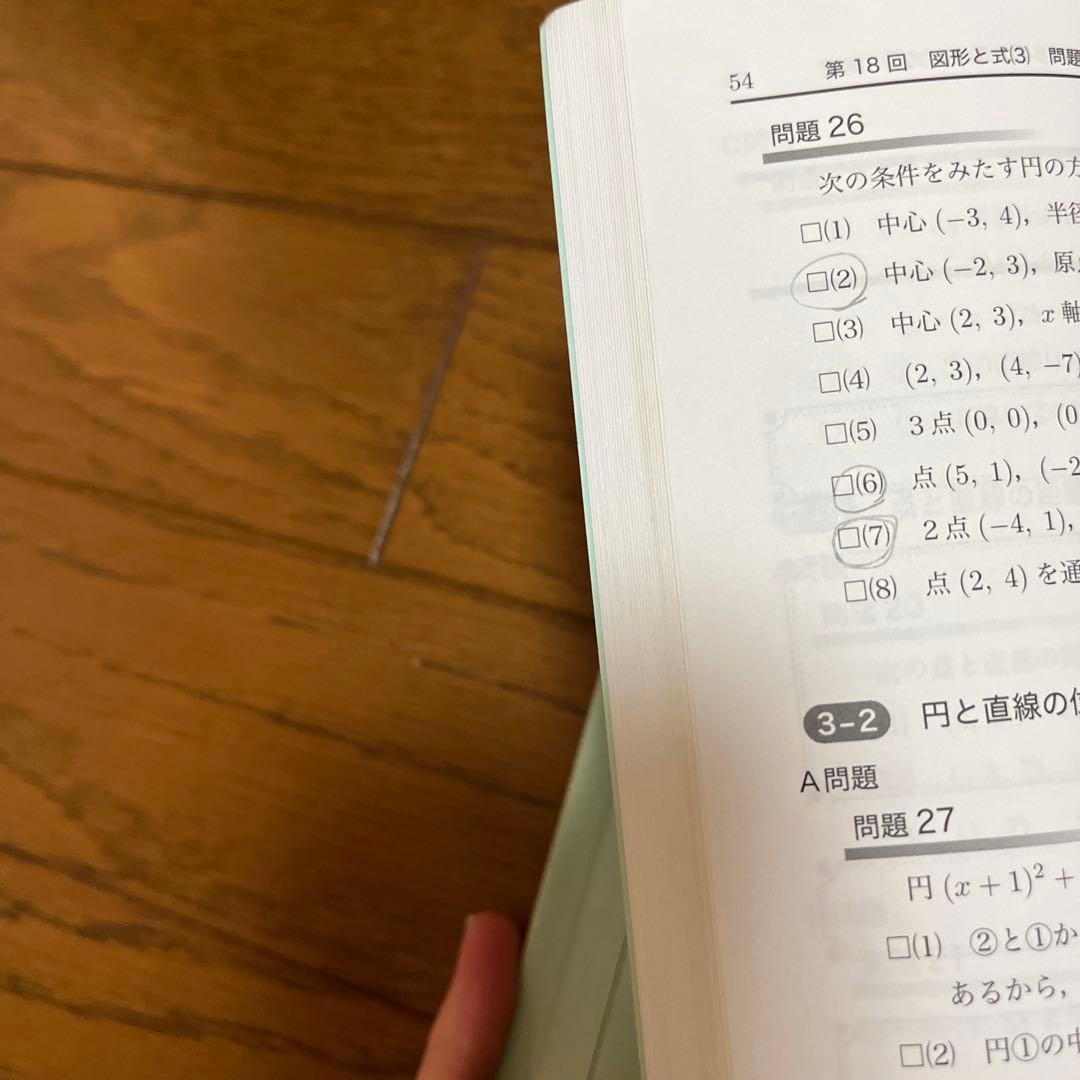 54 第 18 回 図形と式(3) 問題
問題 26
次の条件をみたす円の方
□(1) 中心 (−3, 4), 半径
□(2) 中心 (−2, 3), 原点
□(3) 中心 (2, 3), x 軸
□(4) (2, 3), (4, −7)
□(5) 3 点 (0, 0), (0
□(6) 点 (5, 1), (−2
□(7) 2 点 (−4, 1),
□(8) 点 (2, 4) を通
3−2 円と直線の位
A問題
問題 27
円 (x + 1)² +
□(1) ②と①か
あるから,
□(2) 円①の中